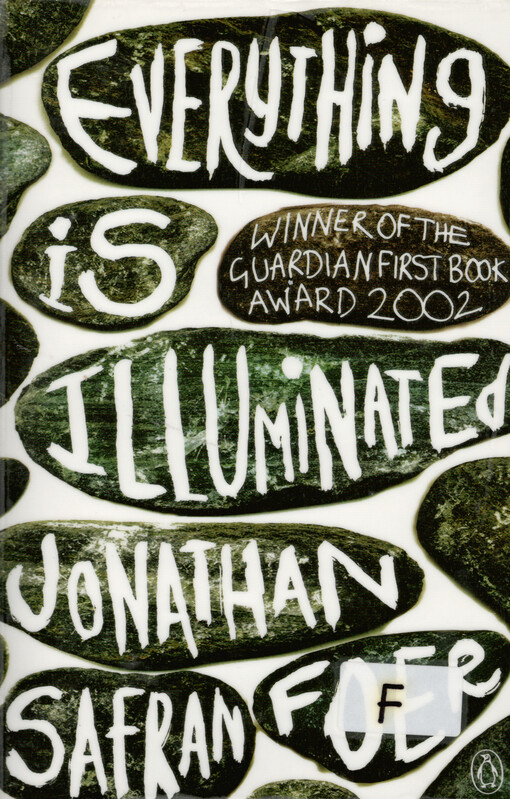 EVERYTHING
iS
WINNER OF THE
GUARDIAN FIRST BOOK
AWARD 2002
ILLUMiNATEd
JONATHAN
SAFRAN FOER
F